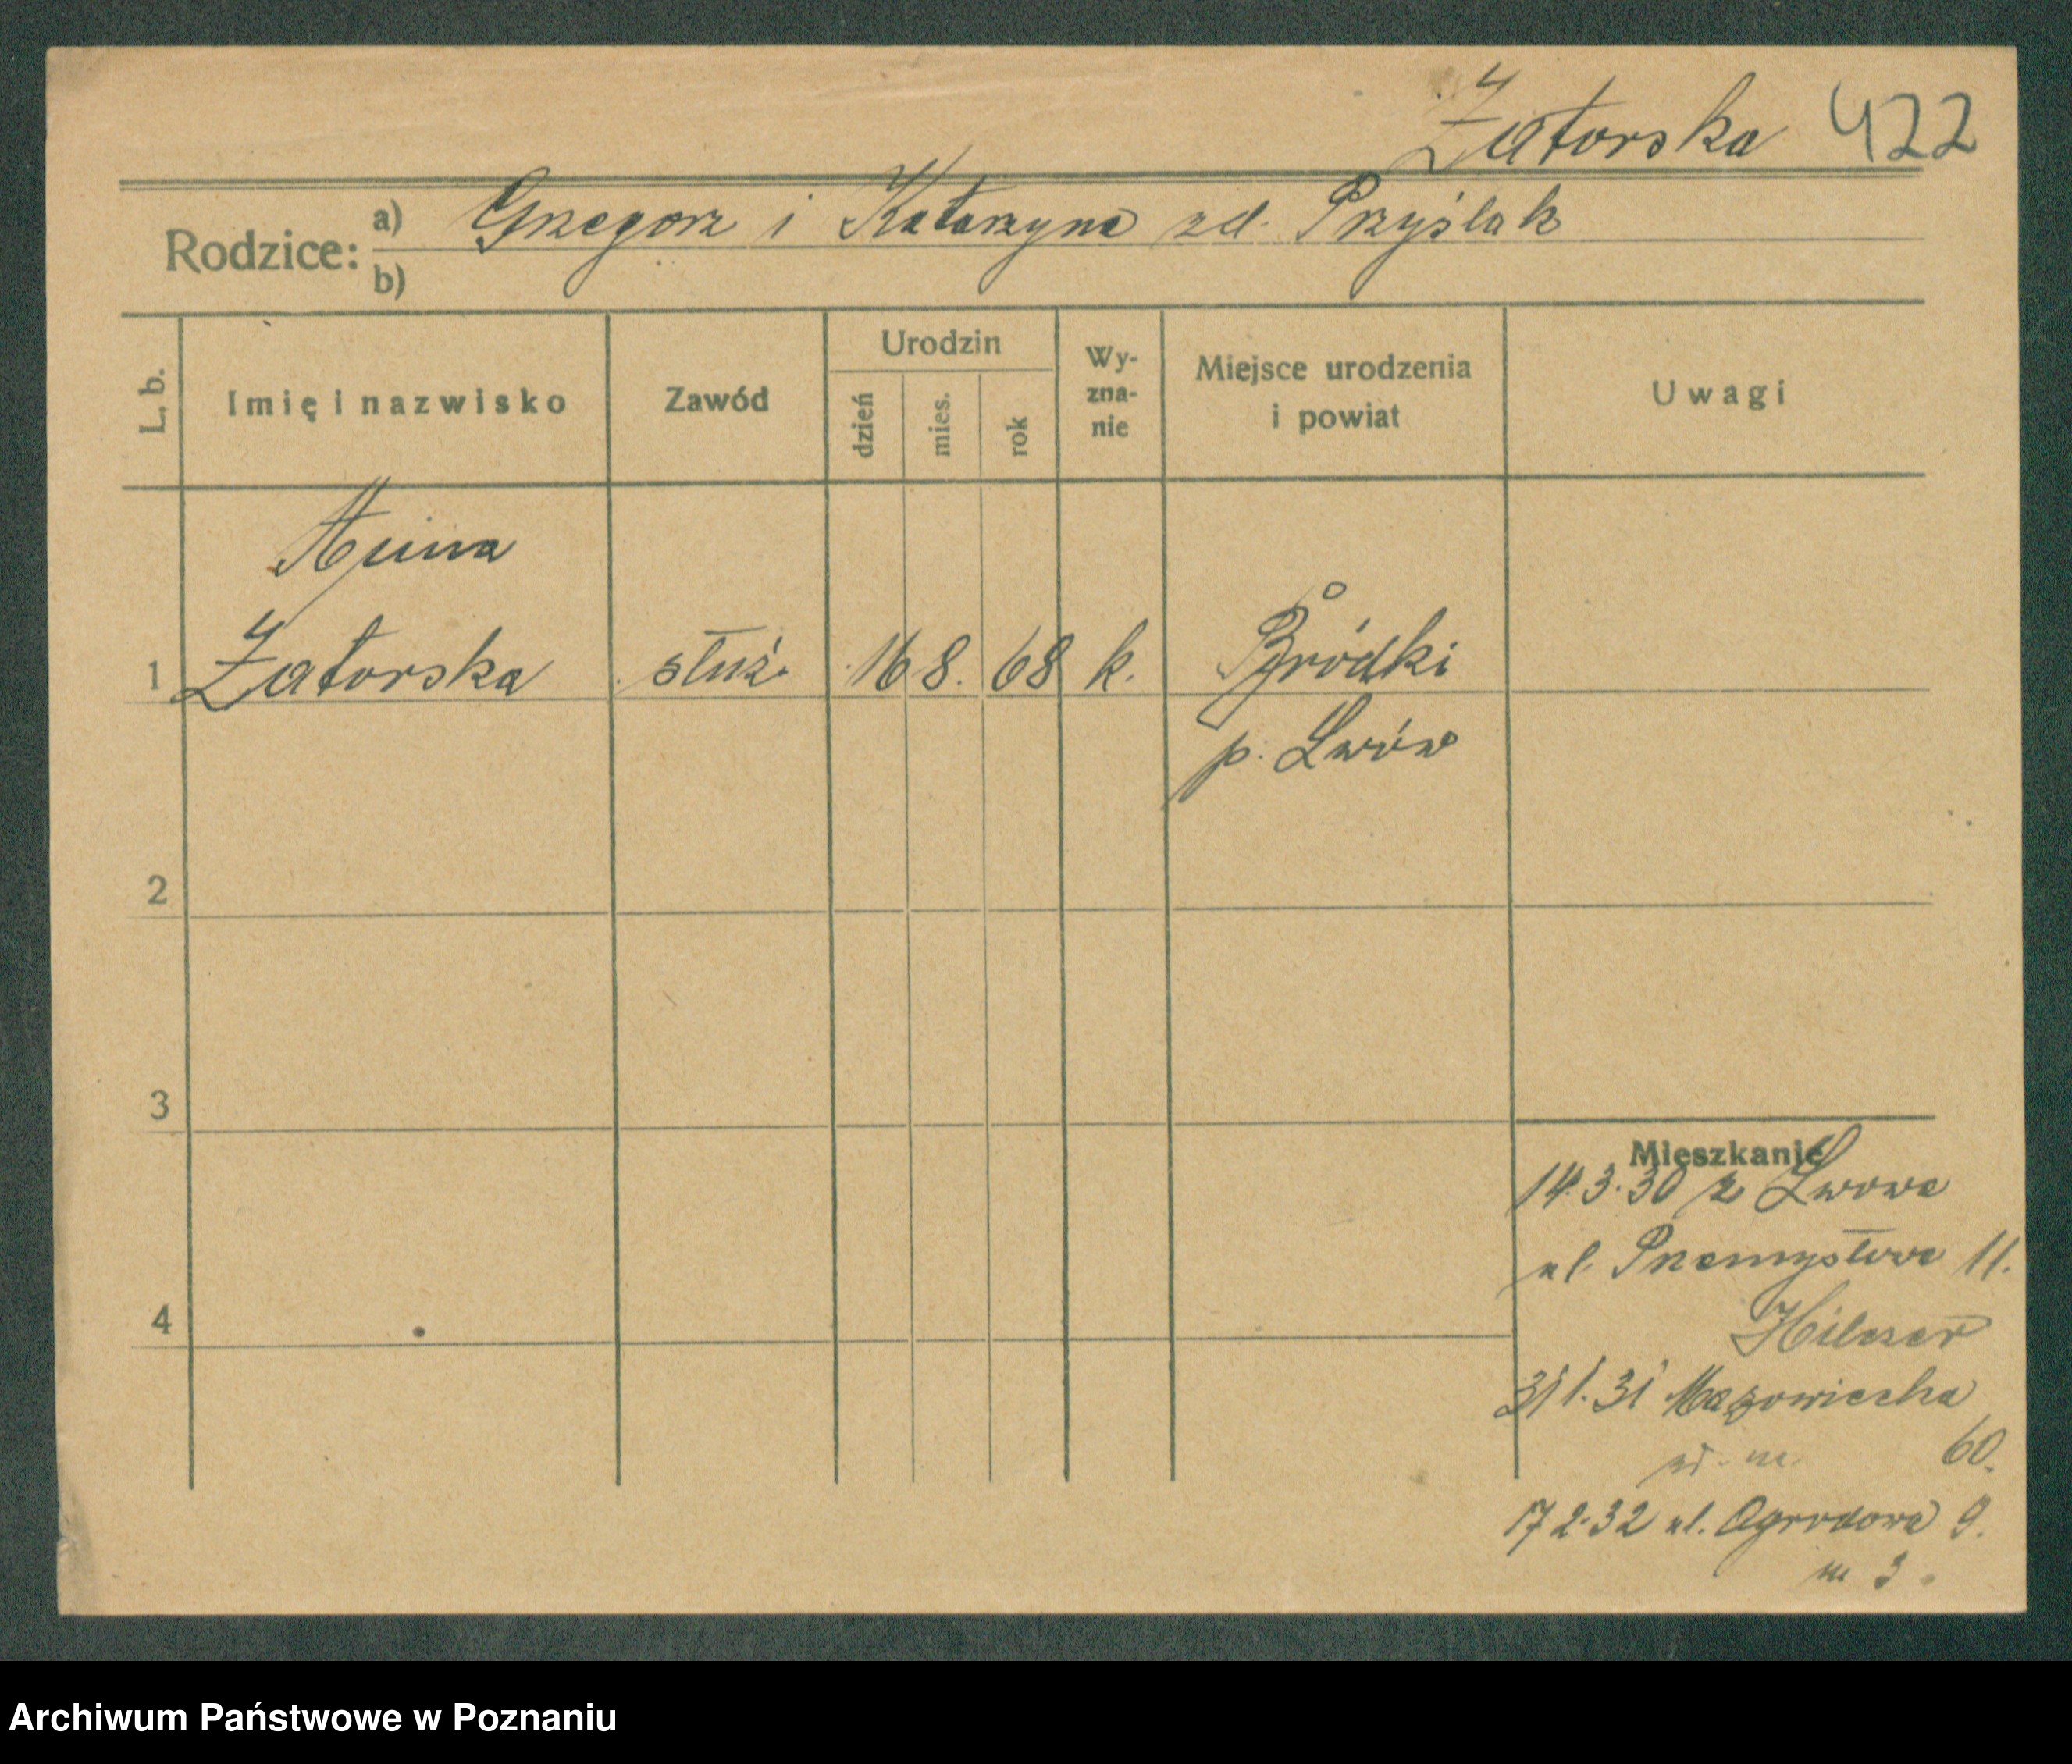 Zatorska 422
Rodzice: a) Grzegorz i Katarzyna zd. Przyślak
b)
L. b. Imię i nazwisko Zawód Urodzin dzień mies. rok Wyznanie Miejsce urodzenia i powiat Uwagi
Anna
1 Zatorska służ. 16 8. 68 k. Bródki
p. Lwów
2
3
4
Mieszkanie
14.3.30 z Lwowa
ul. Przemysłowa 11.
31 1. 31 Mazowiecka
60.
17 2.32 ul. Ogrodowa 9.
m 3.
Archiwum Państwowe w Poznaniu